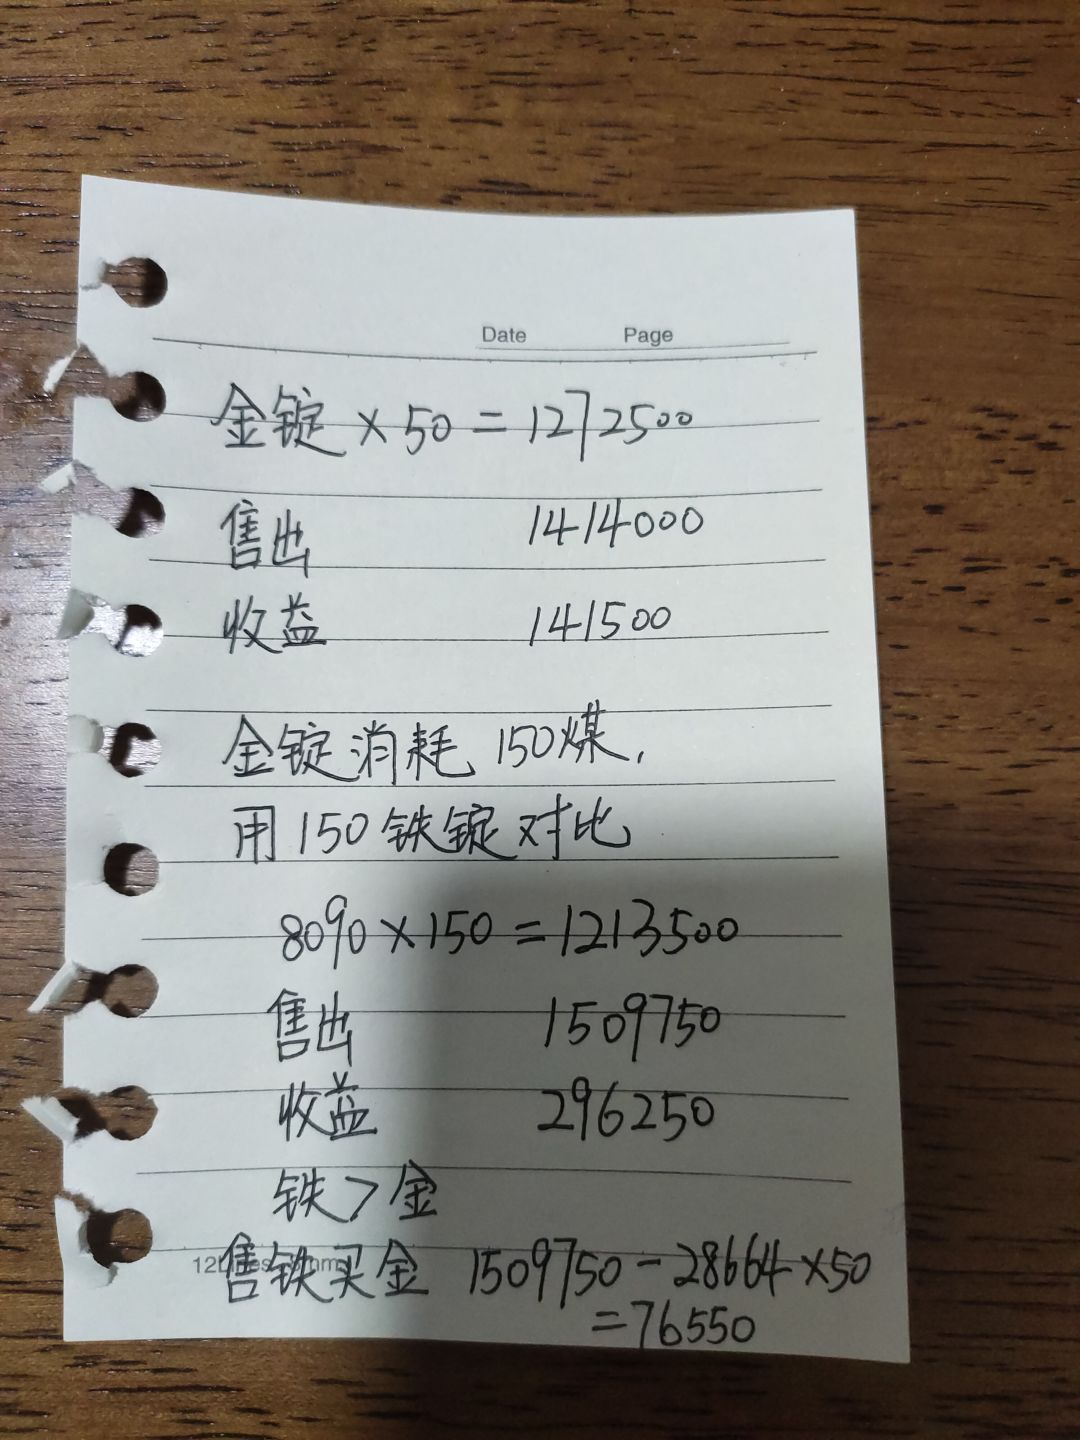 Date Page
金锭 × 50 = 1272500
售出 1414000
收益 141500
金锭消耗 150煤,
用150铁锭对比
8090 × 150 = 1213500
售出 1509750
收益 296250
铁 > 金
售铁买金 1509750 - 28664 × 50
= 76550